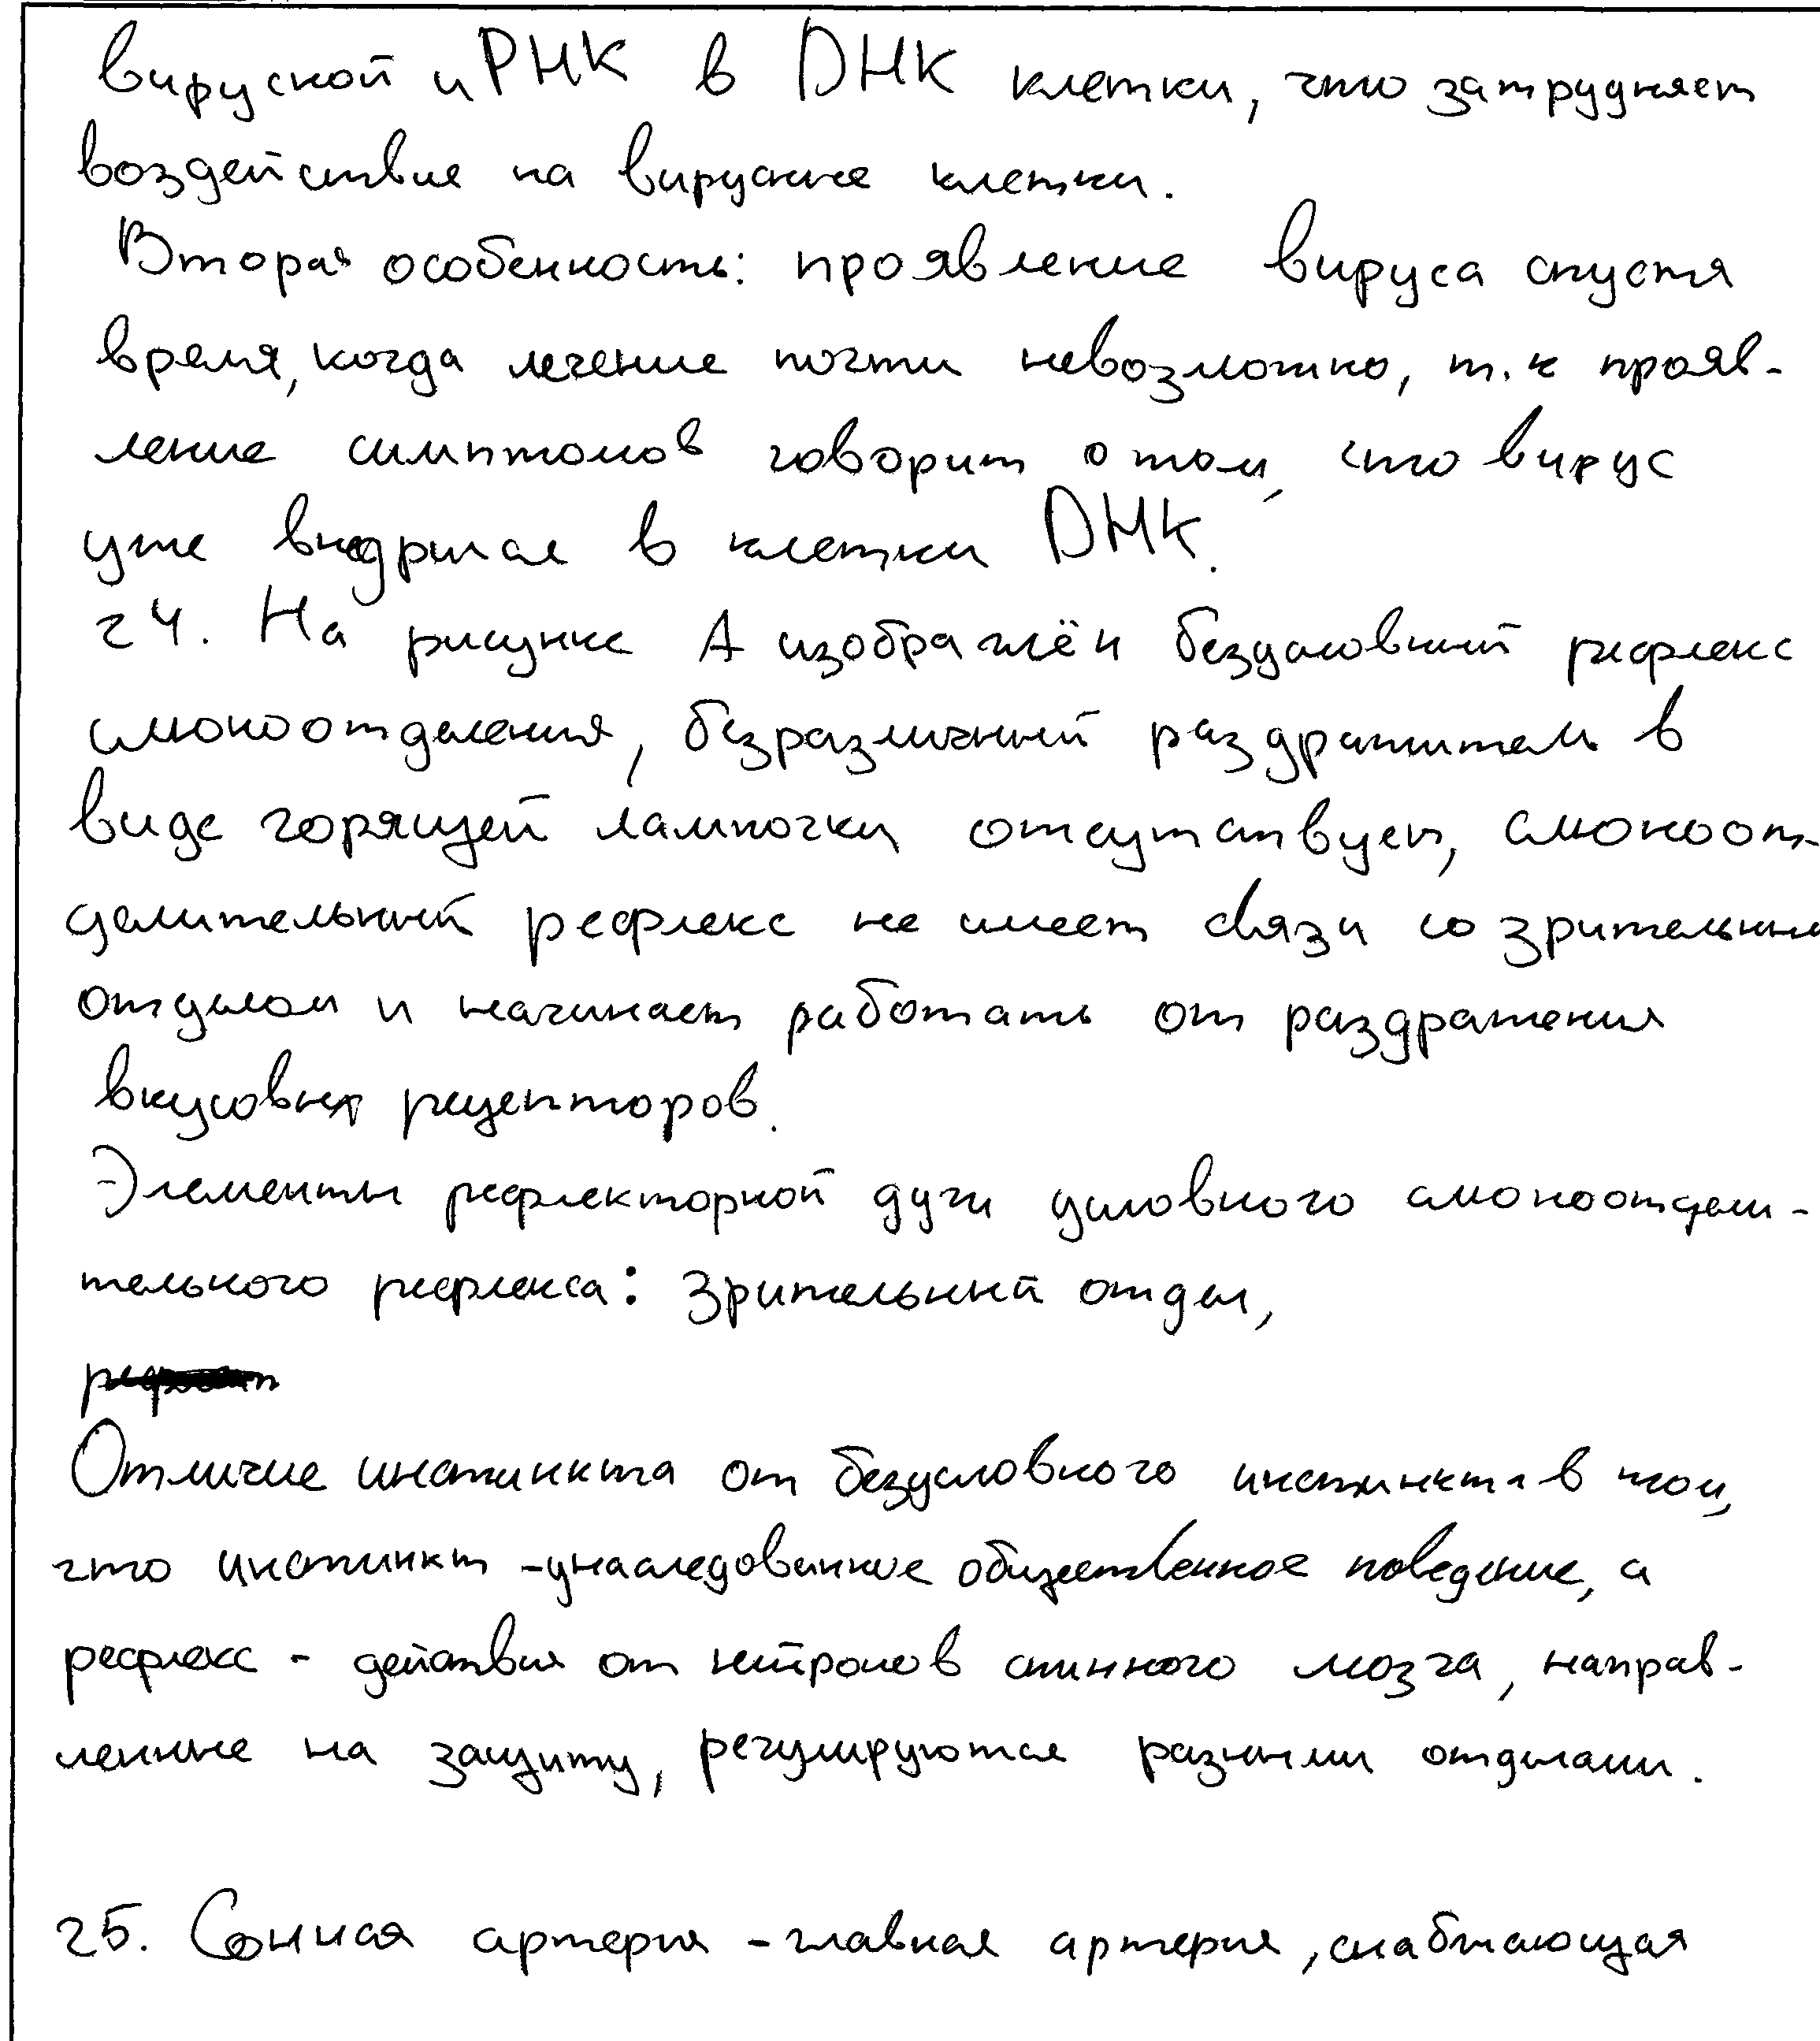 вируской иРНК в ДНК клетки, что затрудняет
воздействие на вирусные клетки.
Вторая особенность: проявление вируса спустя
время, когда лечение почти невозможно, т.к прояв-
ление симптомов говорит о том, что вирус
уже внедрился в клетки ДНК.
24. На рисунке А изображён безусловный рефлекс
слюноотделения, безразличный раздражитель в
виде горящей лампочки отсутствует, слюноот-
делительный рефлекс не имеет связи со зрительным
отделом и начинает работать от раздражения
вкусовых рецепторов.
Элементы рефлекторной дуги условного слюноотдели-
тельного рефлекса: зрительный отдел,
Отличие инстинкта от безусловного инстинкта в том,
что инстинкт - унаследованное общественное поведение, а
рефлекс - действия от нейронов спинного мозга, направ-
ленные на защиту, регулируются разными отделами.
25. Сонная артерия - главная артерия, снабжающая